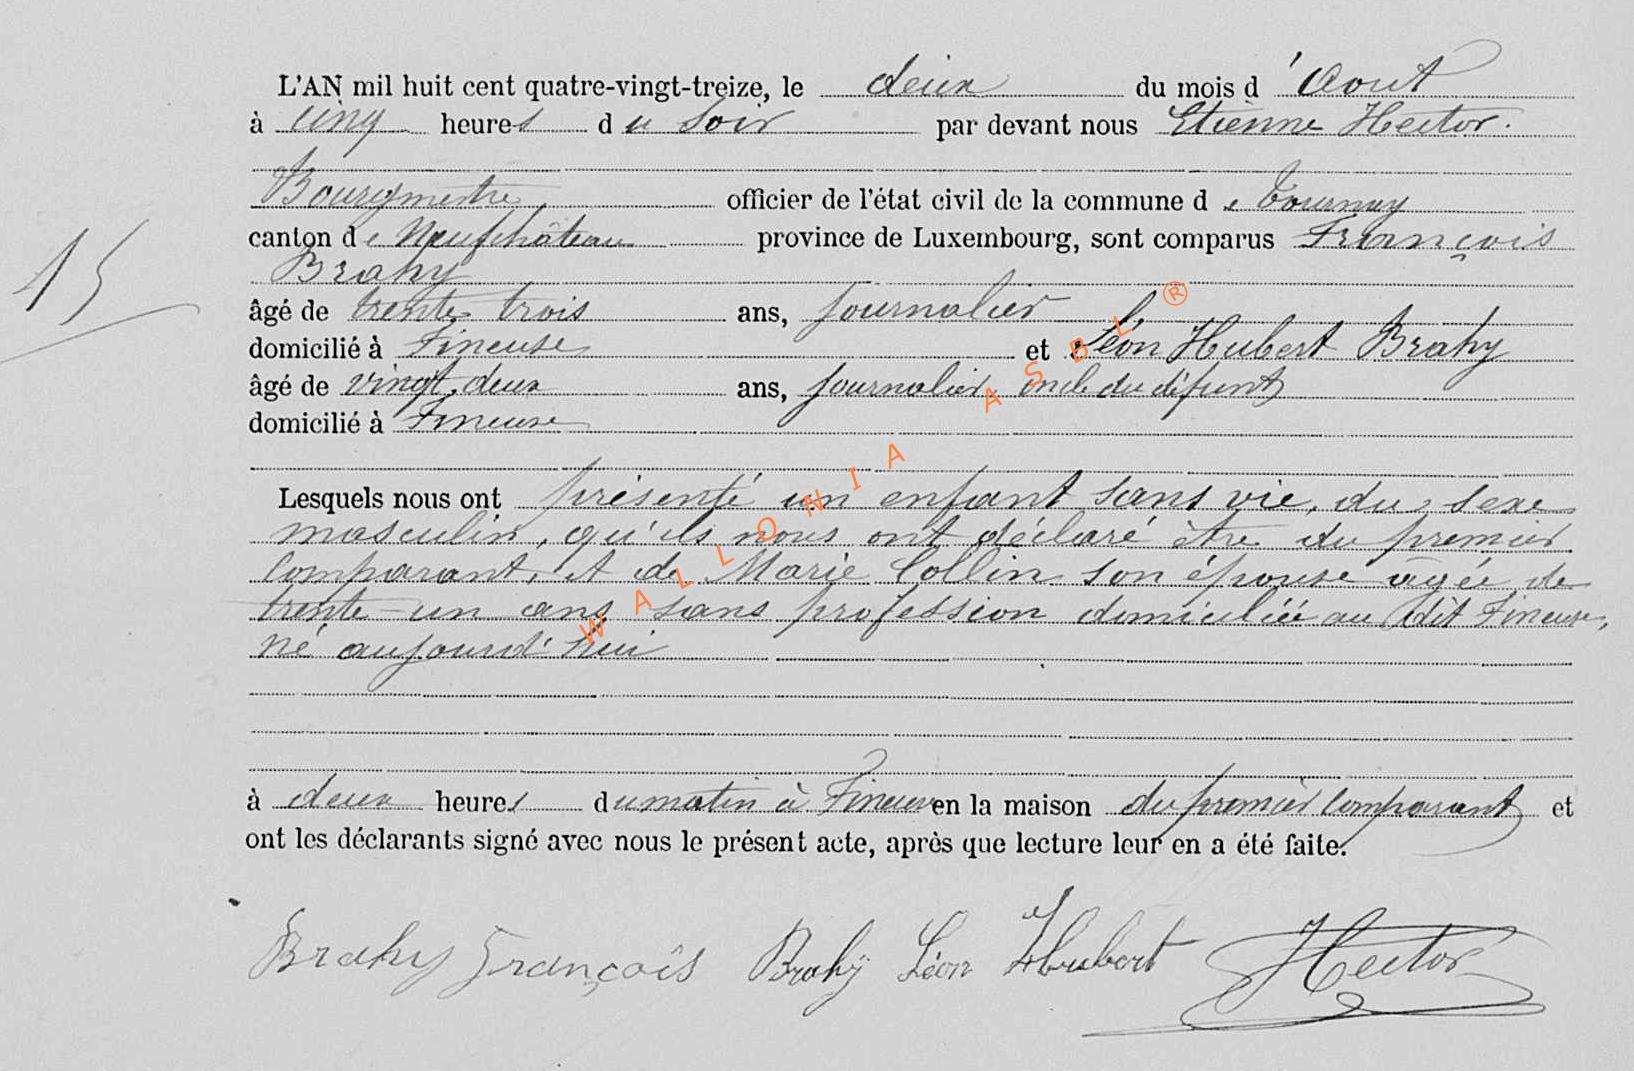 L'AN mil huit cent quatre-vingt-treize, le deux du mois d'Aout
à cinq heures du Soir par devant nous Etienne Hector.
Bourgmestre officier de l'état civil de la commune de Tournay
canton de Neufchâteau province de Luxembourg, sont comparus François
Brahy
15
âgé de trente trois ans, journalier
domicilié à Fineuse et Léon Hubert Brahy
âgé de vingt deux ans, journalier oncle du défunt
domicilié à Fineuse
Lesquels nous ont présenté un enfant sans vie, du sexe
masculin, qu'ils nous ont déclaré être du premier
comparant, et de Marie Collin son épouse âgée de
trente-un ans sans profession domiciliée au dit Fineuse,
né aujourd'hui
à deux heures du matin à Fineuse en la maison du premier comparant et
ont les déclarants signé avec nous le présent acte, après que lecture leur en a été faite.
Brahy François Brahÿ Léon Hubert Hector
WALLONIA ASBL ®